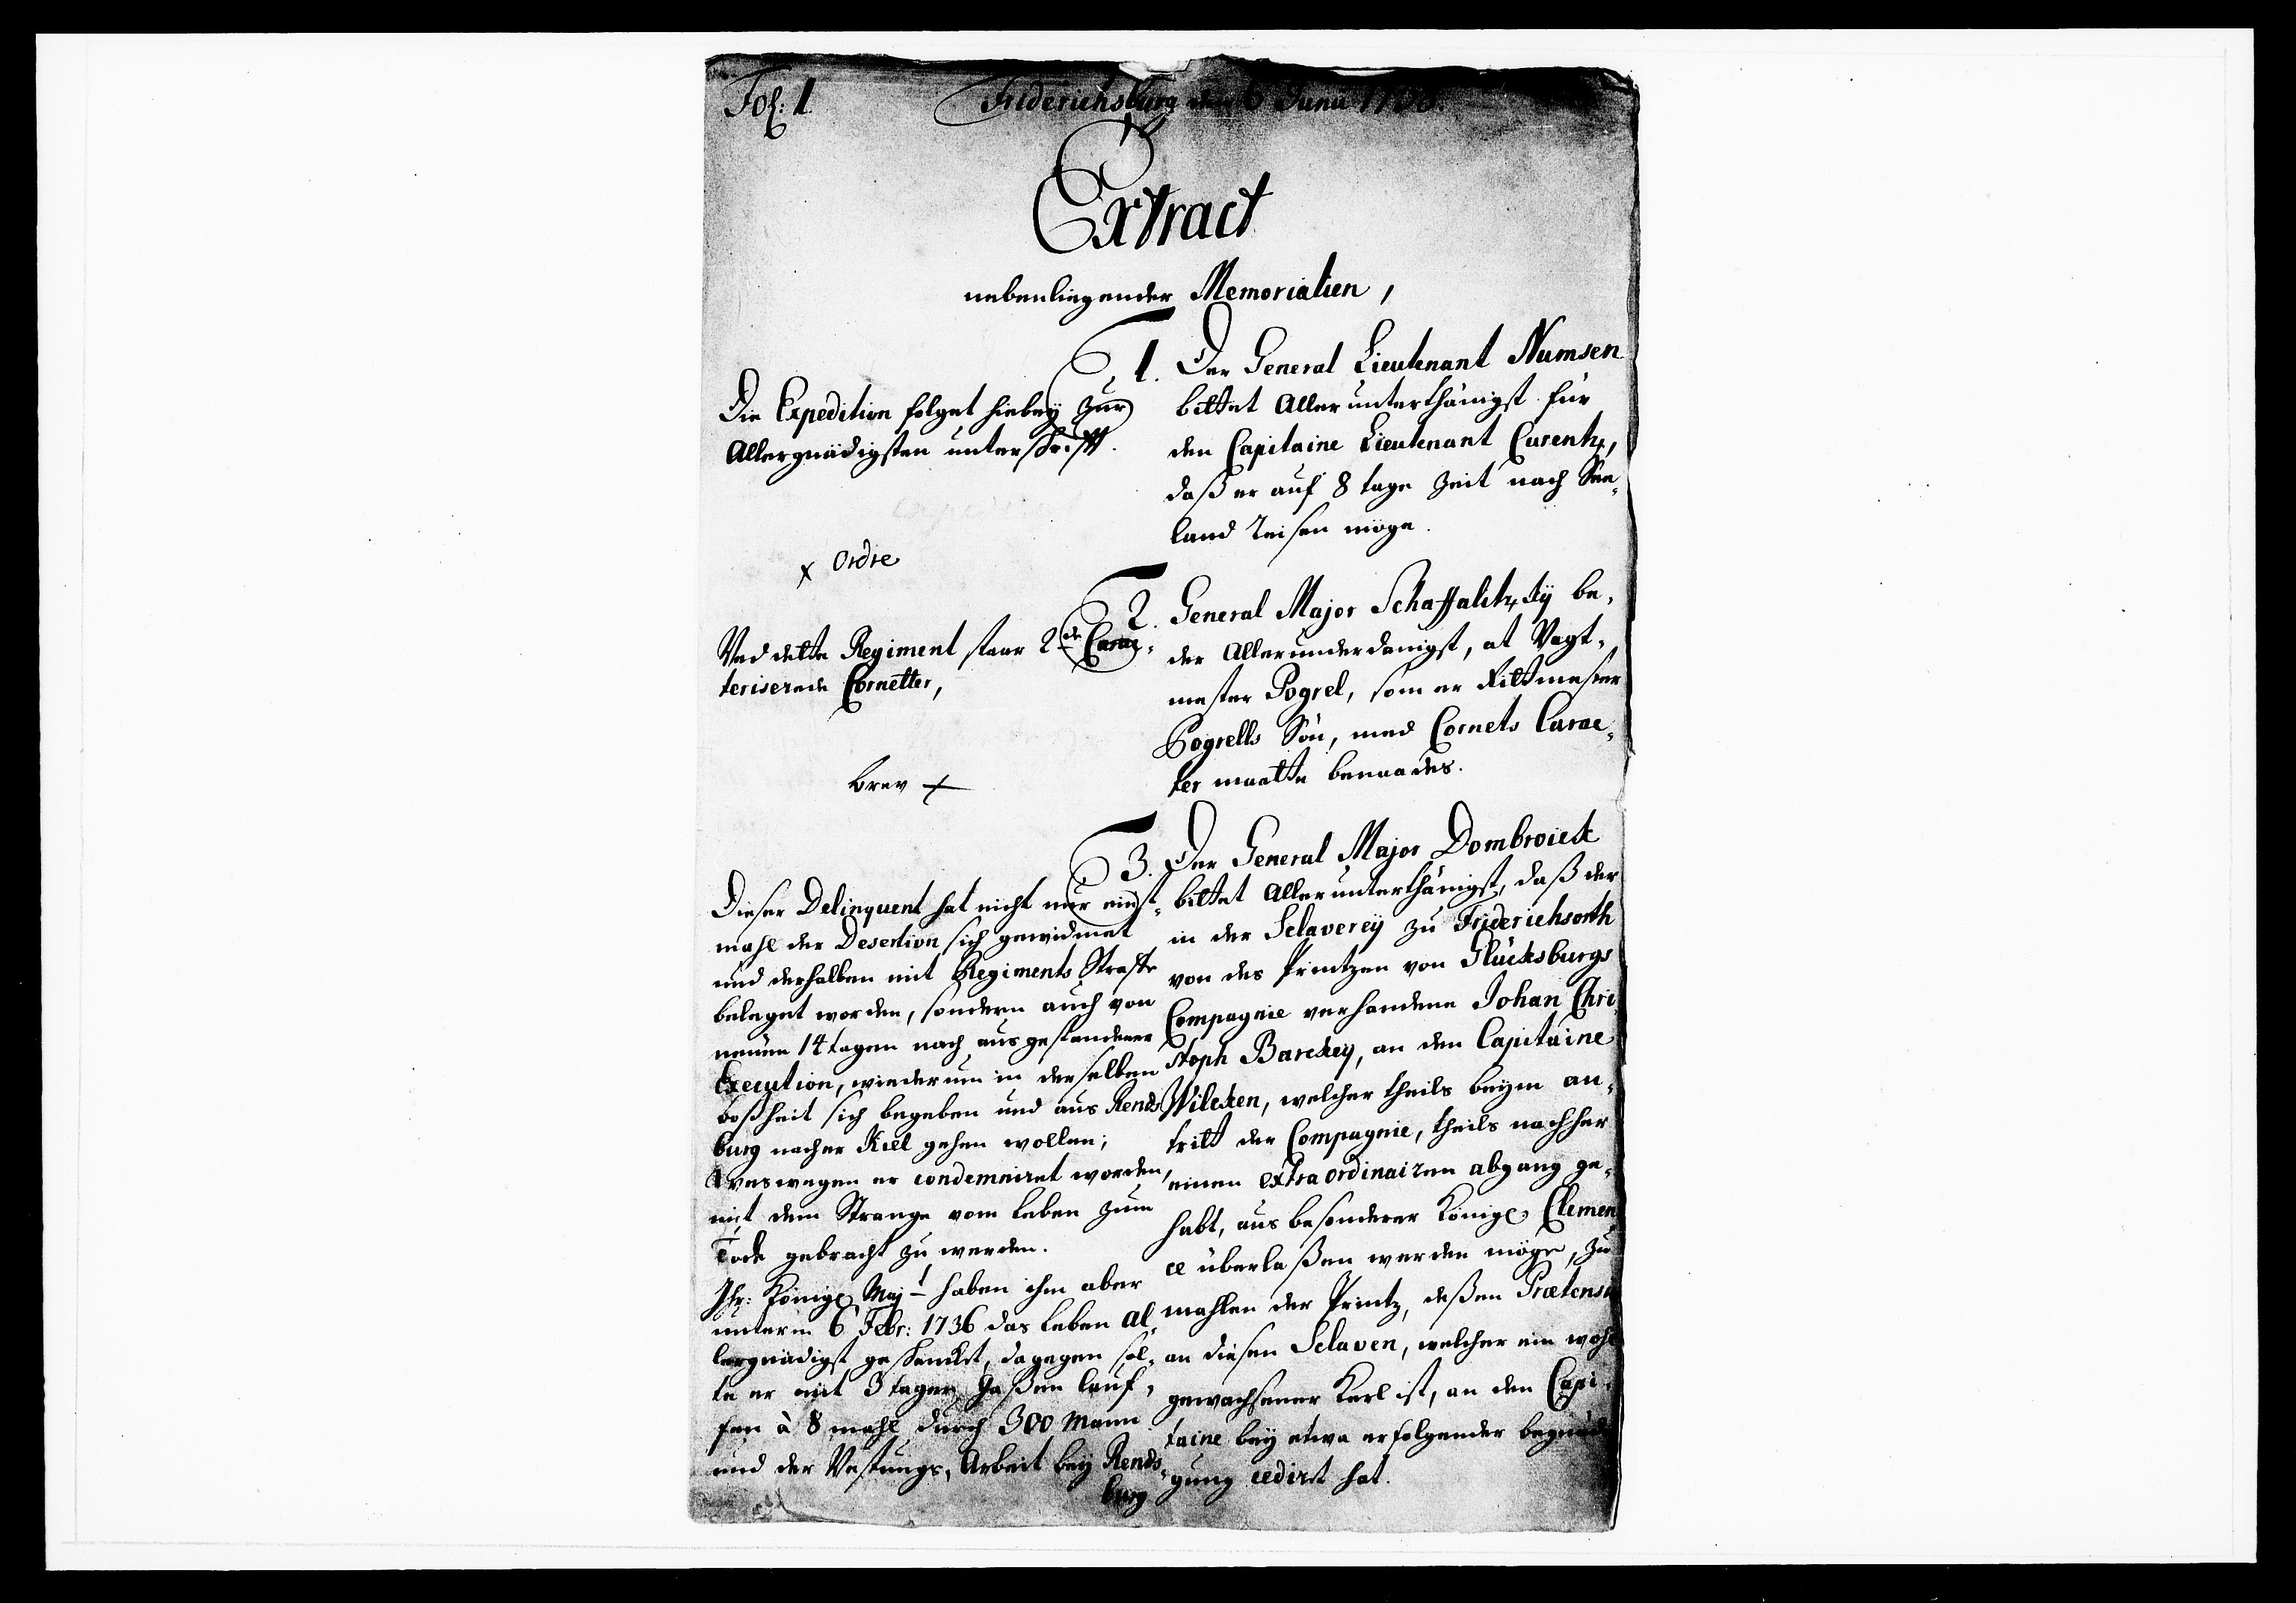 Fol: 1.
Friderichsburg den 6 Junii
Extract
nebenliegender Memorialien,
1. Der General Lieutenant Numsen
bittet Allerunterthänigst für
den Capitaine Lieutenant Curentz,
daß er auf 8 tage Zeit nach See-
land Reisen möge.
Die Expedition folget hiebeÿ zur
Allergnädigsten unterschrifft.
x Ordre
2. General Major Schaffalitzkÿ be-
der Allerunderdanigst, at Vagt-
mester Pogrel, som er Rittmester
Pogrells Sön, med Cornets Carac-
ter maatte benaades.
Ved dette Regiment staar 2de Carac-
teriserede Cornetter,
brev x
3. Der General Major Dombroick
bittet Allerunterthänigst, daß der
in der Sclavereÿ zu Friderichsorth
von des Printzen von Glücksburgs
Compagnie verhandene Johan Chri-
stoph Barckeÿ, an den Capitaine
Wilcken, welcher theils beÿm an-
tritt der Compagnie, theils nachher
einen extraordinairen abgang ge-
habt, aus besonderer Königl. Clemen-
ce überlaßen werden möge, zu
mahlen der Printz, deßen Prætension
an diesen Sclaven, welcher ein wohl
gewachsener Kerl ist, an den Capi-
taine beÿ etwa erfolgender begnadi-
gung cediret hat.
Dieser Delinquent hat nicht nur einst-
mahl der Desertion sich gewidmet
und derhalben mit Regiments Straffe
beleget worden, sondern auch von
neüen 14 tagen nach ausgestandener
Execution, wiederum in derselben
boßheit sich begeben und aus Rends-
burg nacher Kiel gehen wollen;
weswegen er condemniret worden,
mit dem Strange vom Leben zum
Tode gebracht zu werden.
Ihr: Königl. Majt haben ihm aber
unterm 6 Febr: 1736 das Leben Al-
lergnädigst geschencket, dagegen sol-
te er mit 3 tagen Gaßen lauf-
fen à 8 mahl durch 300 Mann
und der Vestungs-Arbeit beÿ Rends-
burg